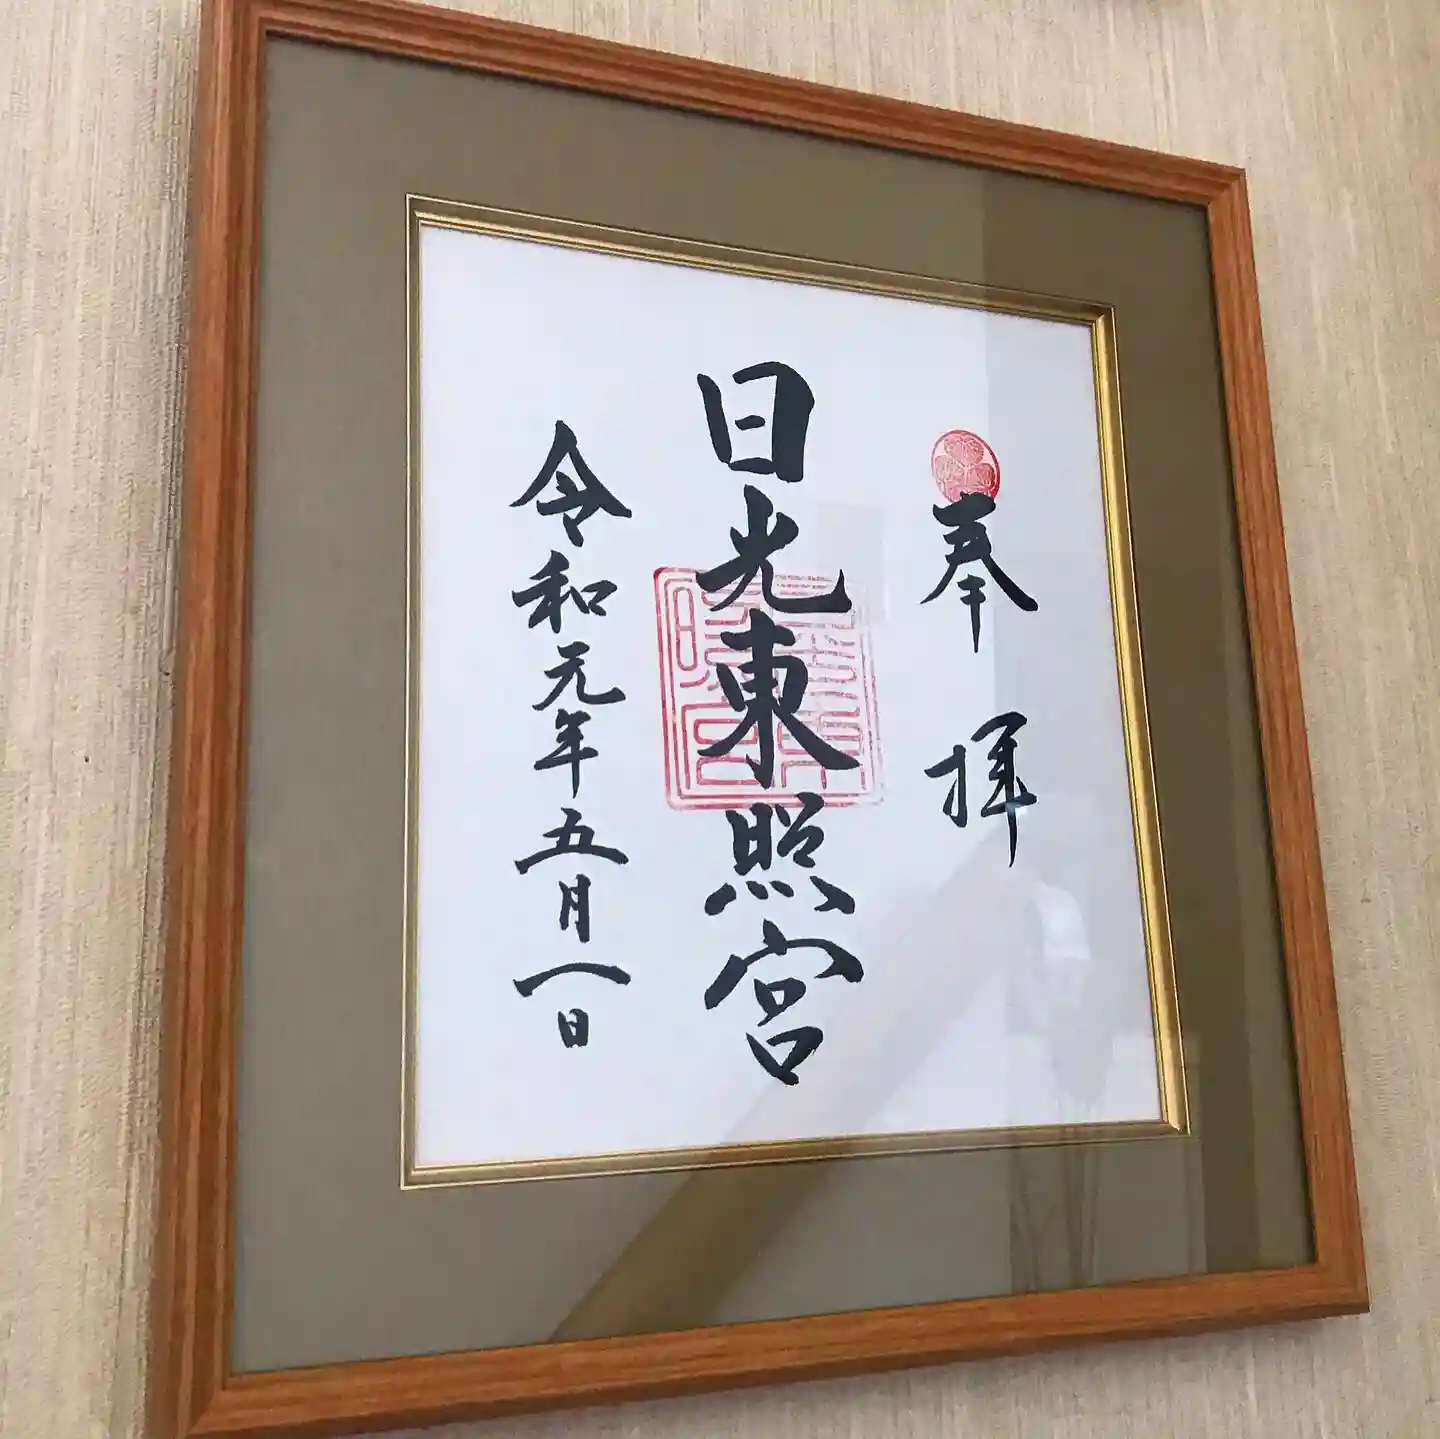 奉拝
日光東照宮
令和元年五月一日